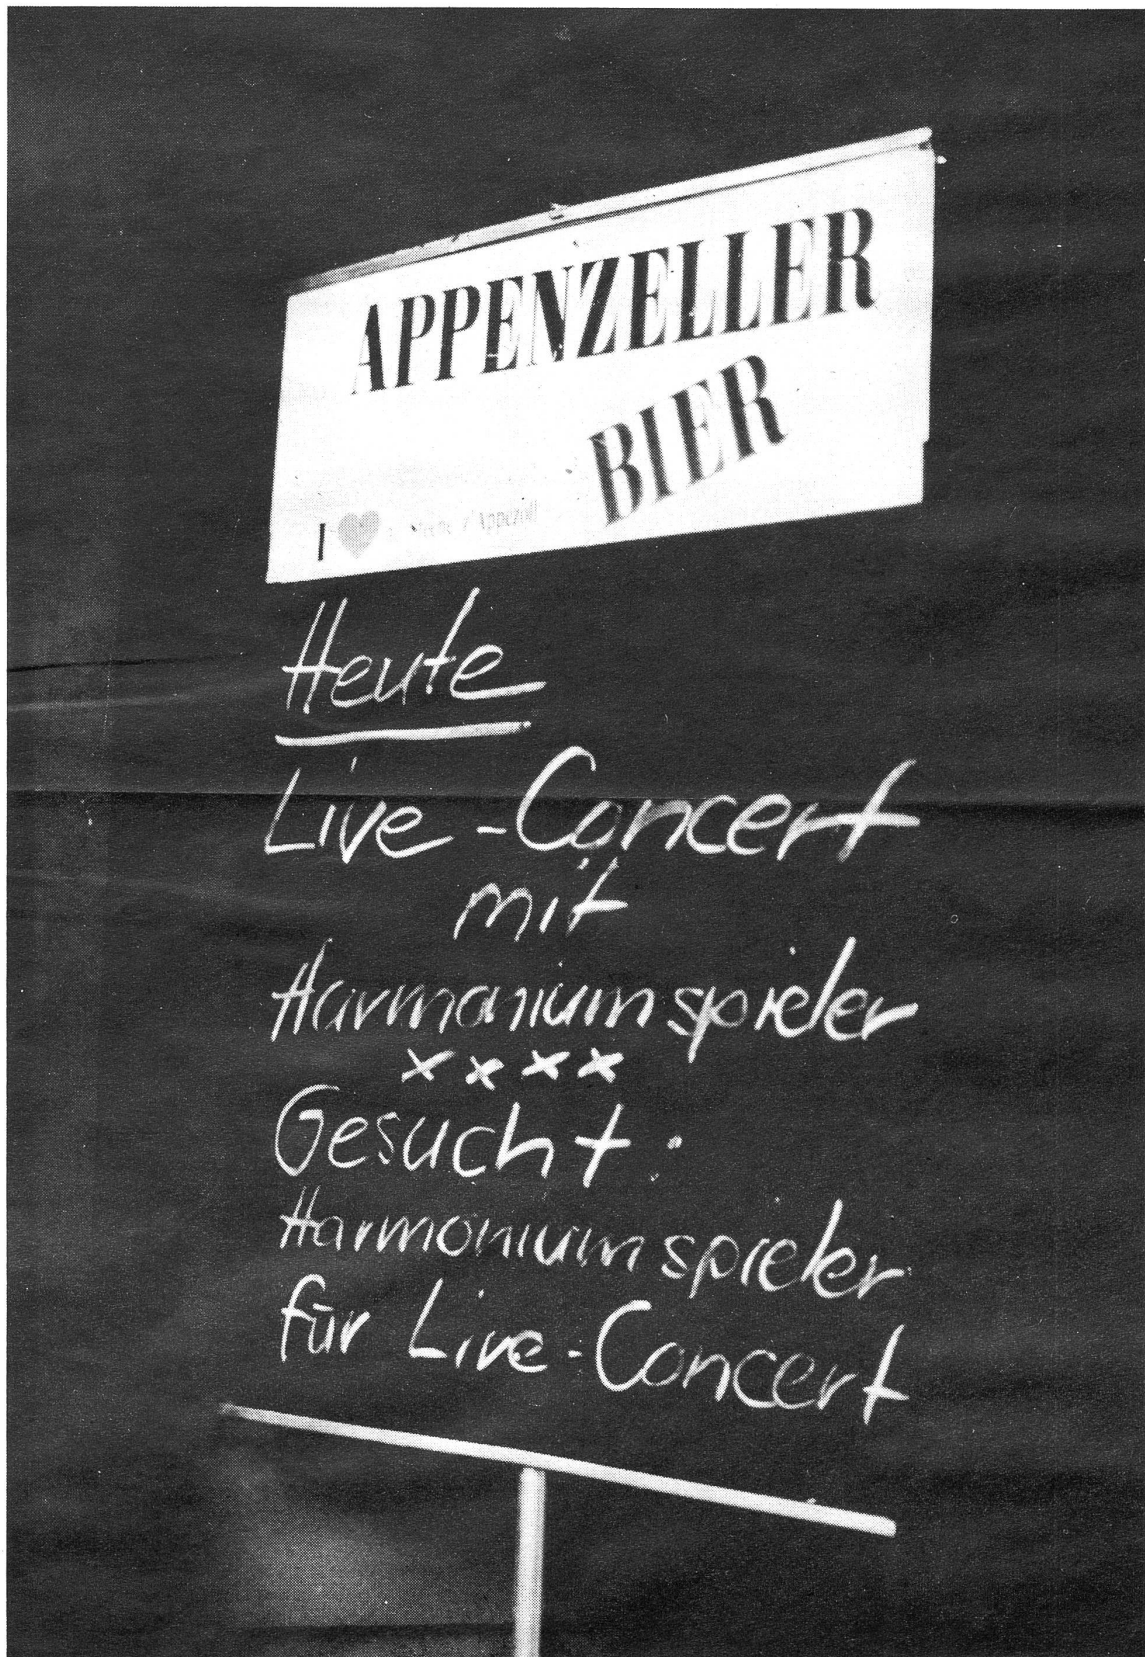 APPENZELLER
BIER
I ❤ Appezöll
Heute
Live-Concert
mit
Harmoniumspieler
x x x x
Gesucht:
Harmoniumspieler
für Live-Concert